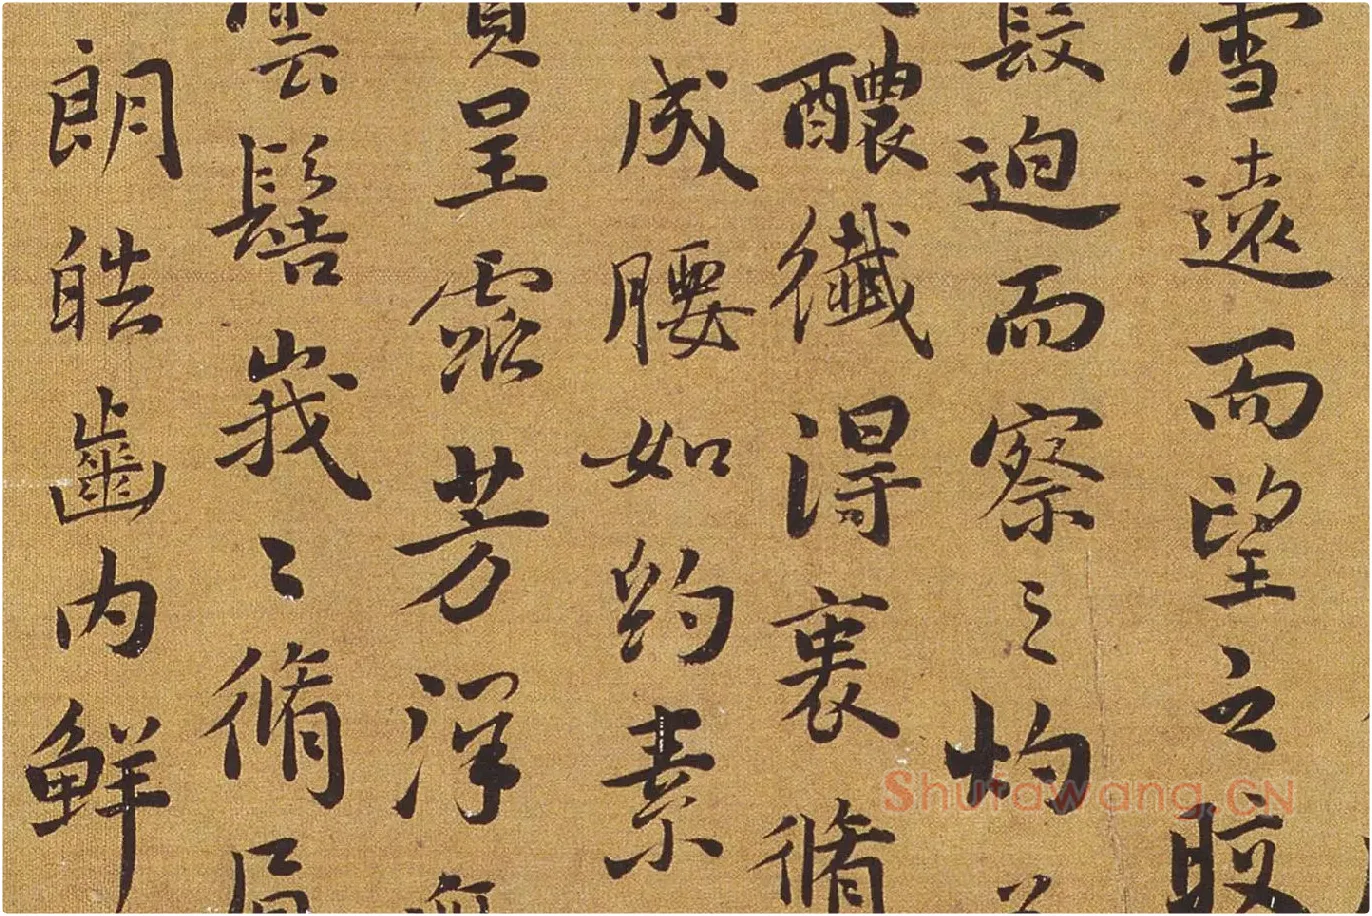 雪遠而望之皎
髮迫而察之灼
醲纖得衷脩
成腰如約素
呈露芳澤無
雲髻峩〻脩眉
朗皓齒内鮮
Shufawang.CN